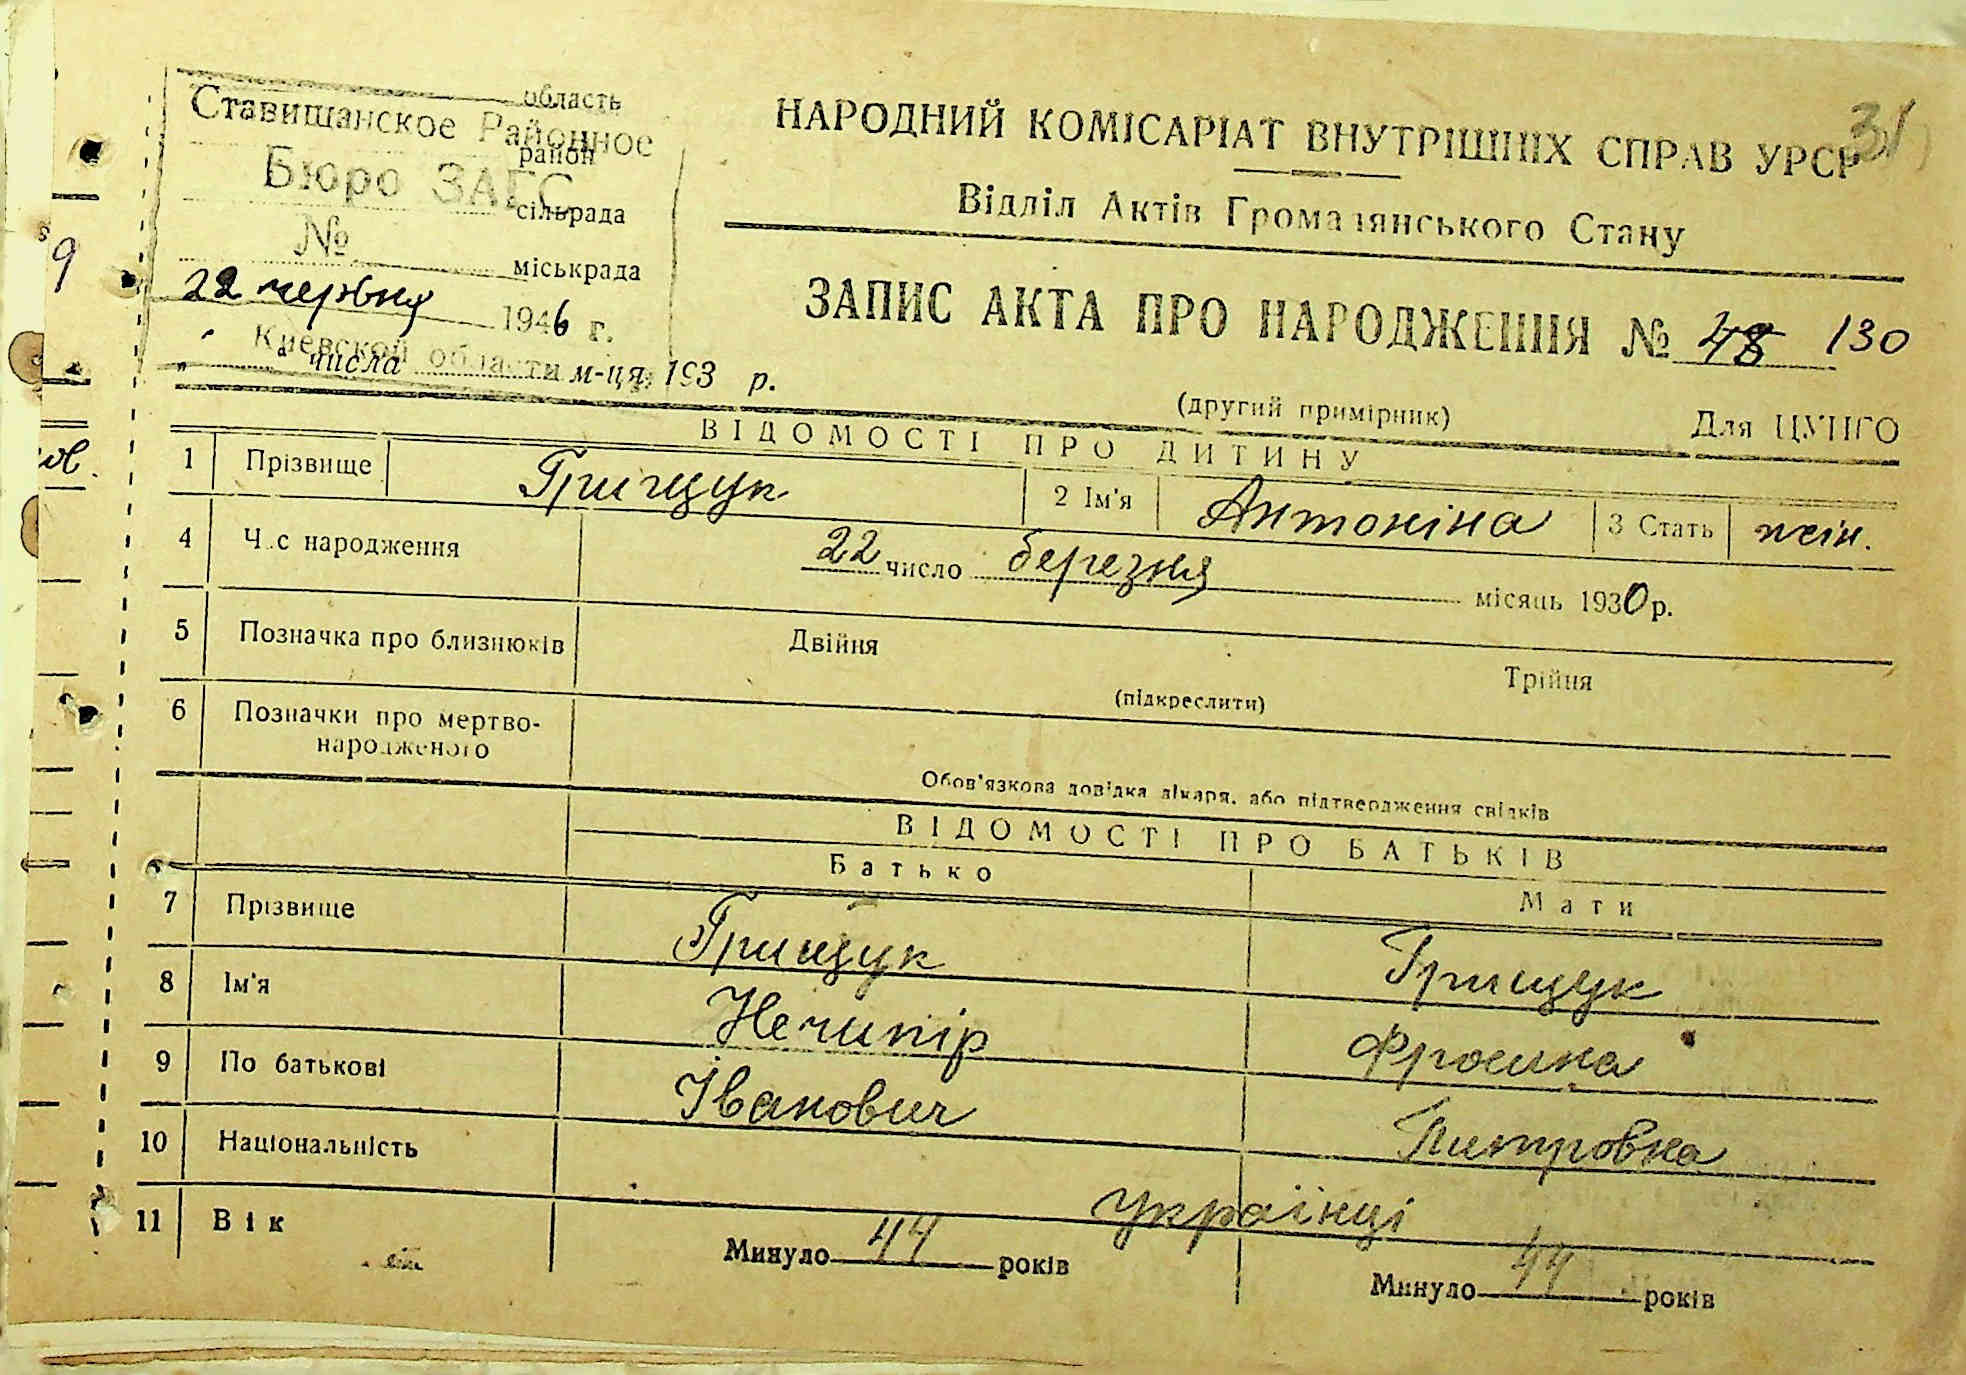 область
Ставищанское Районное
район
Бюро ЗАГС
сільрада
№
міськрада
22 червня 1946 г.
Киевской области
" " числа м-ця 193 р.
НАРОДНИЙ КОМІСАРІАТ ВНУТРІШНІХ СПРАВ УРСР
31
Відділ Актів Громадянського Стану
ЗАПИС АКТА ПРО НАРОДЖЕННЯ № 48 130
(другий примірник) Для ЦУНГО
ВІДОМОСТІ ПРО ДИТИНУ
1 Прізвище Грищук 2 Ім'я Антоніна 3 Стать жін.
4 Час народження 22 число березня місяць 1930 р.
5 Позначка про близнюків Двійня Трійня
(підкреслити)
6 Позначки про мертво-
народженого
Обов'язкова довідка лікаря, або підтвердження свідків
ВІДОМОСТІ ПРО БАТЬКІВ
Батько Мати
7 Прізвище Грищук Грищук
8 Ім'я Нечипір Фросина
9 По батькові Іванович Питровна
10 Національність українці
11 Вік Минуло 44 років Минуло 44 років
9
ов.